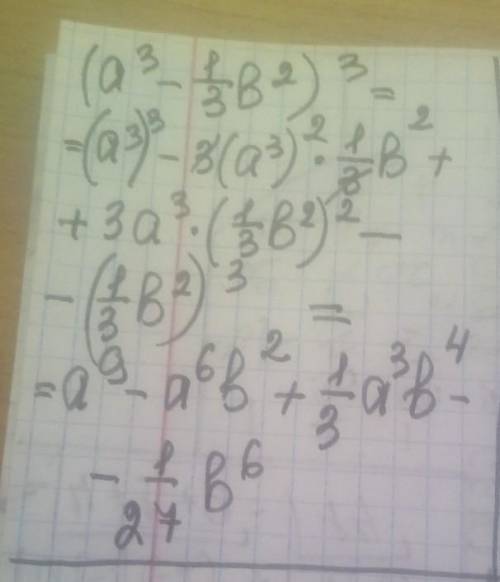 (a³ - 1/3 b²)³ =
= (a³)³ - 3(a³)² · 1/3 b² +
+ 3a³ · (1/3 b²)² -
- (1/3 b²)³ =
= a⁹ - a⁶b² + 1/3 a³b⁴ -
- 1/27 b⁶